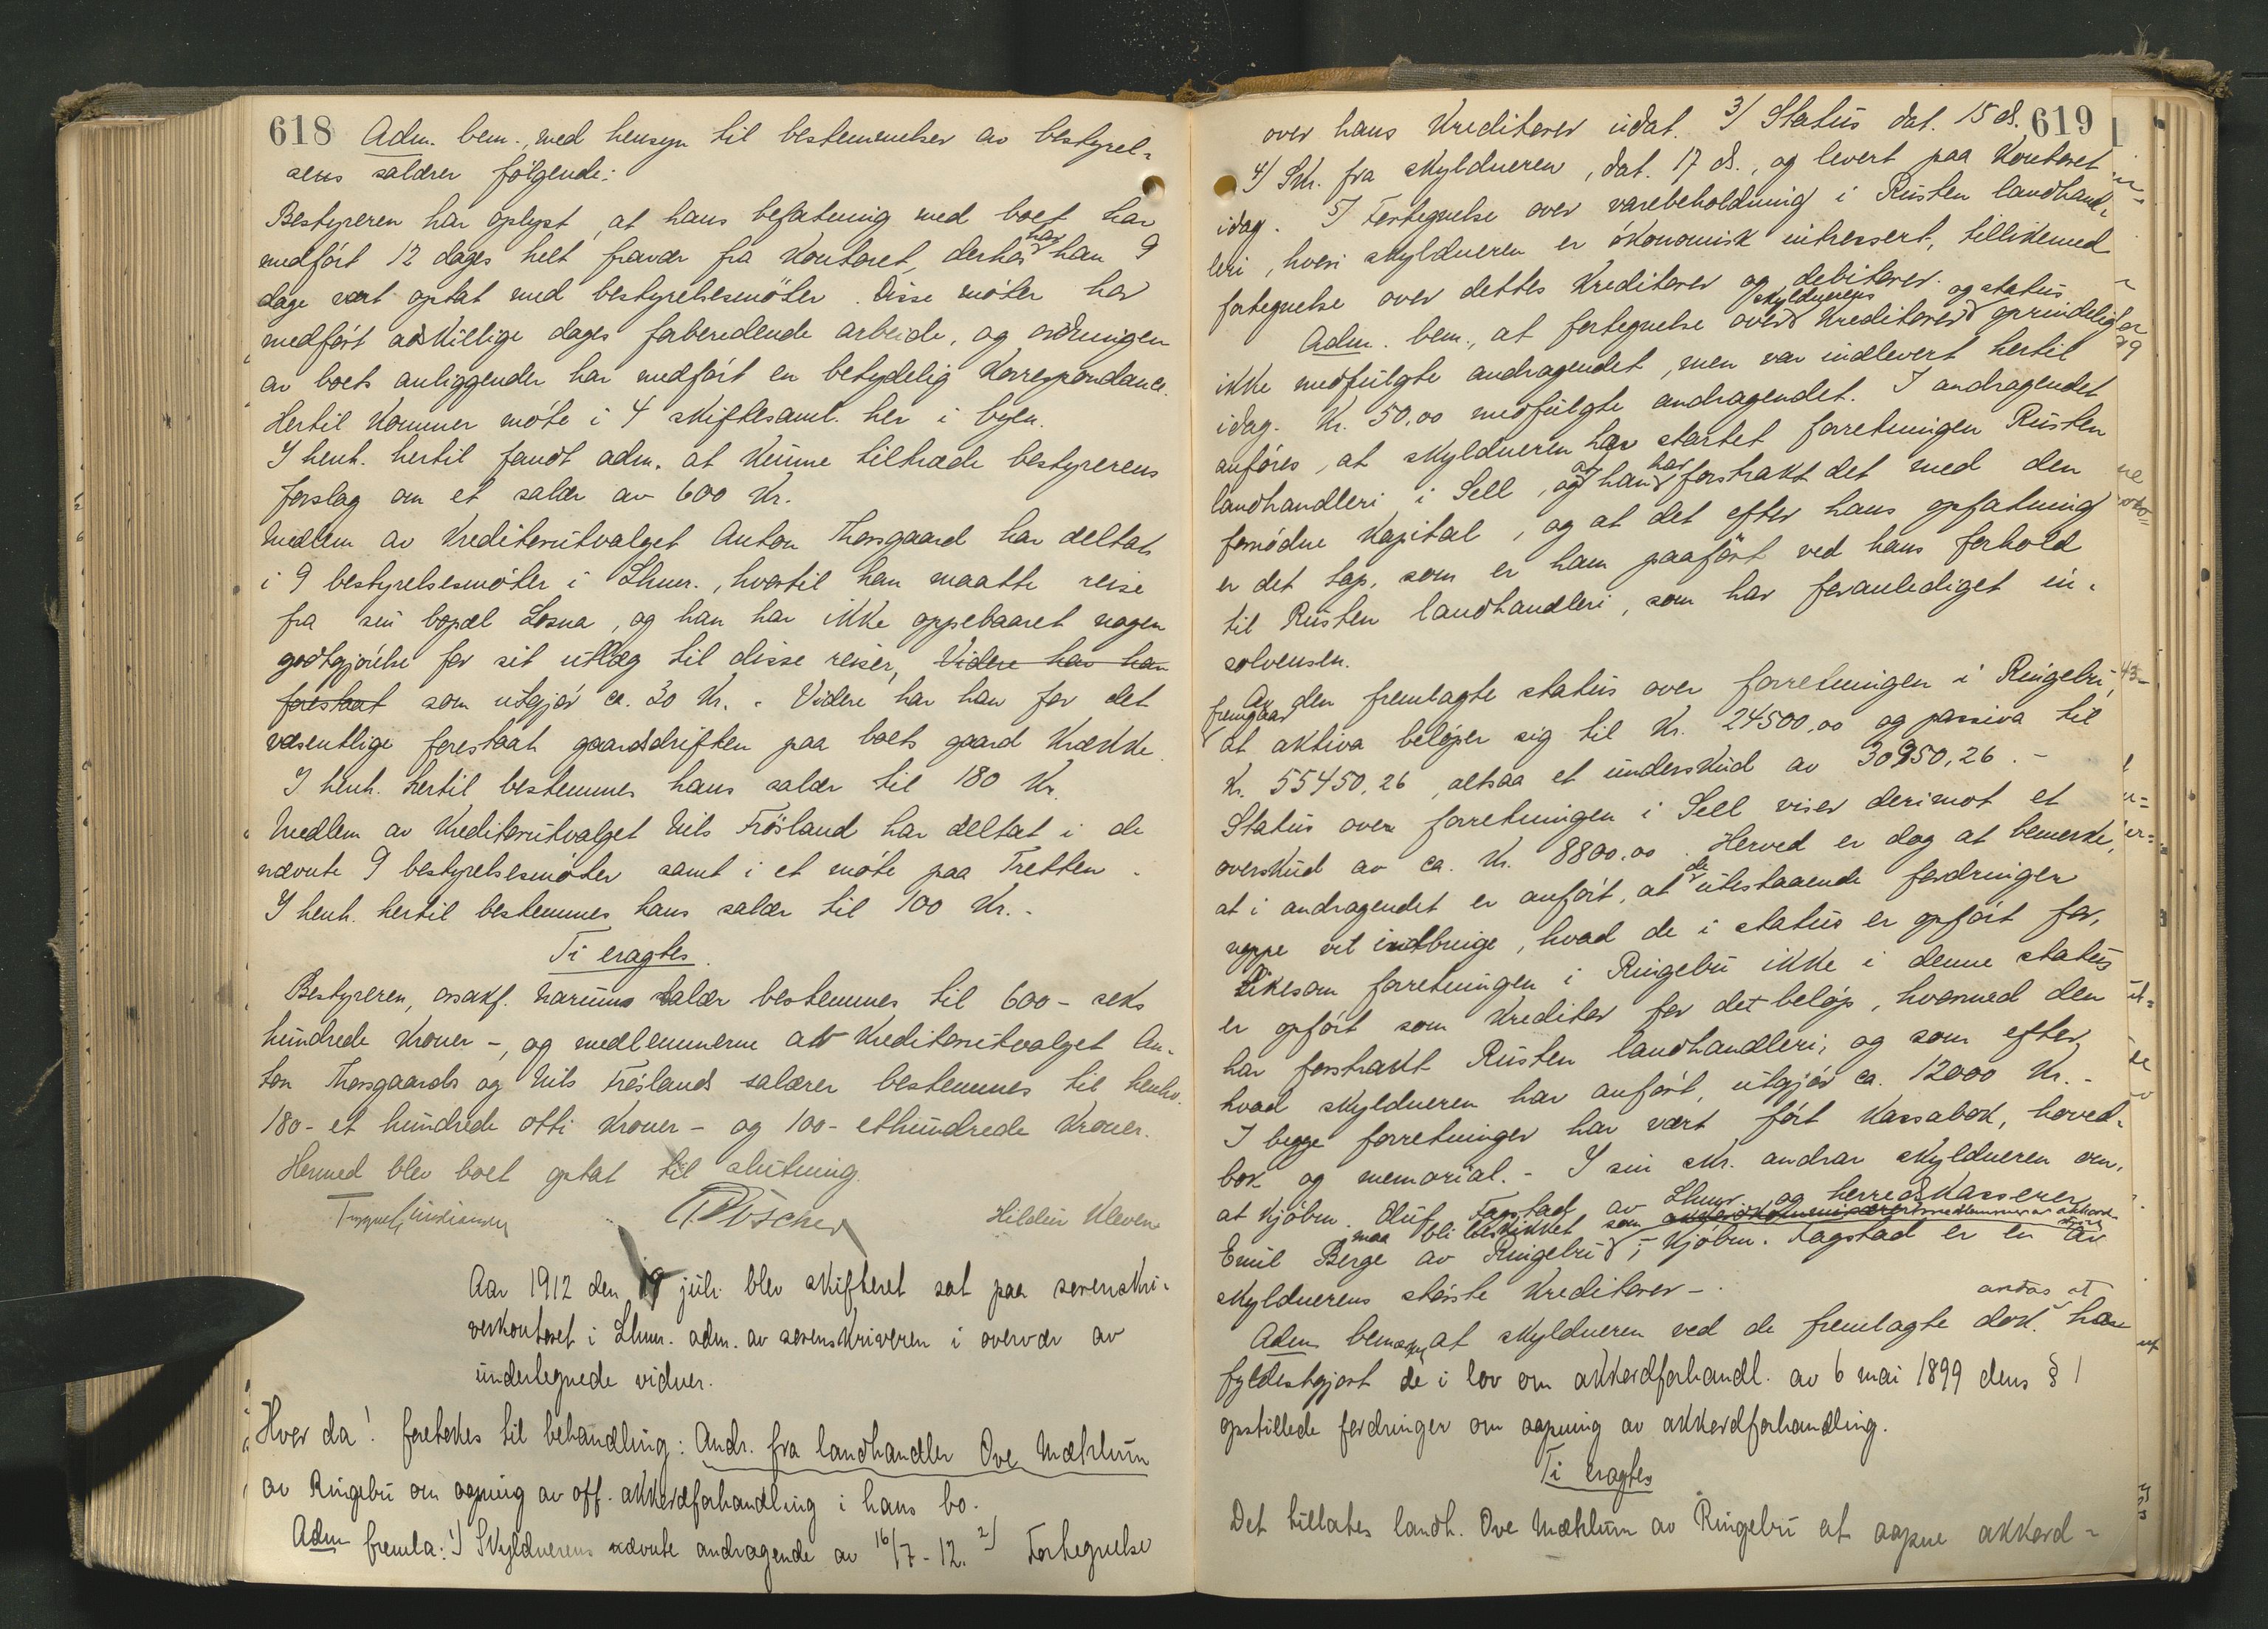 618
Adm. bem., med hensyn til bestemmelser av bestyrel-
sens salærer følgende:
Bestyreren har oplyst, at hans befatning med boet har
medført 12 dages helt fravær fra kontoret, derhos har han 9
dage vært optat med bestyrelsesmöter. Disse möter har
medført adskillige dages forberedende arbeide, og ordningen
av boets anliggender har medført en betydelig korrespondance.
Hertil kommer möte i 4 skiftesaml. her i byen.
I henh. hertil fandt adm. at kunne tiltræde bestyrerens
forslag om et salær av 600 kr.
Medlem av kreditorutvalget Anton Thorsgaard har deltat
i 9 bestyrelsesmöter i Lhmr., hvortil han maatte reise
fra sin bopæl Losna, og han har ikke oppebaaret nogen
godtgjörelse for sit utlæg til disse reiser, Videre har han
forestaat som utgjör ca. 30 kr. - Videre har han for det
væsentlige forestaat gaardsdriften paa boets gaard Krække.
I henh. hertil bestemmes hans salær til 180 kr.
Medlem av kreditorutvalget Nils Fröisland har deltat i de
nævnte 9 bestyrelsesmöter samt i et möte paa Tretten.
I henh. hertil bestemmes hans salær til 100 kr. -
Ti eragtes.
Bestyreren, o.sakf. Narums salær bestemmes til 600 - seks
hundrede kroner -, og medlemmerne av kreditorutvalget An-
ton Thorsgaards og Nils Fröislands salærer bestemmes til henhv.
180 - et hundrede otti kroner - og 100 - ethundrede kroner.
Hermed blev boet optat til slutning.
Hildur Kleven
Aar 1912 den 19 juli blev skifteret sat paa sorenskri-
verkontoret i Lhmr. adm. av sorenskriveren i overvær av
undertegnede vidner.
Hvor da! foretokes til behandling: Andr. fra landhandler Ove Mæhlum
av Ringebu om aapning av off. akkordforhandling i hans bo.
Adm fremla: 1) Skyldnerens nævnte andragende av 16/7-12. 2) Fortegnelse
619
over hans kreditorer udat. 3) Status dat. 15 ds.
4) Skr. fra skyldneren, dat. 17 ds., og levert paa kontoret
idag. 5) Fortegnelse over varebeholdning i Rusten landhand-
leri, hvori skyldneren er ökonomisk intressert, tillikemed
fortegnelse over dettes kreditorer og debitorer. og status
Adm. bem., at fortegnelse over skyldnerens kreditorer oprindelig
ikke medfulgte andragendet, men var indlevert hertil
idag. Kr. 50,00 medfulgte andragendet. I andragendet
anføres, at skyldneren har startet forretningen Rusten
landhandleri i Sell, og at han har forstrakt det med den
fornödne kapital, og at det efter hans opfatning
er det tap, som er ham paafört ved hans forhold
til Rusten landhandleri, som har foranlediget in-
solvensen.
Av den fremlagte status over forretningen i Ringebu,
fremgaar
at aktiva belöper sig til kr. 24500,00 og passiva til
kr. 55450,26, altsaa et underskud av 30950,26. -
Status over forretningen i Sell viser derimot et
overskud av ca. kr. 8800,00. Herved er dog at bemerke,
at i andragendet er anfört, at de utestaaende fordringer
neppe vil indbringe, hvad de i status er opfört for,
likesom forretningen i Ringebu ikke i denne status
er opfört som kreditor for det belöp, hvormed den
har forstrakt Rusten landhandleri, og som efter
hvad skyldneren har anfört, utgjör ca. 12000 kr. -
I begge forretninger har vært fört kassabok, hoved-
bok og memorial. - I sin skr. andrar skyldneren om,
at kjöbm. Oluf Fagstad av Lhmr. og herredskasserer
Emil Berge av Ringebu maa bli beskikket som medlemmer av akkord-
styret; kjöbm. Fagstad er en av
skyldnerens störste kreditorer -
Adm. bemerket, at skyldneren ved de fremlagte dok. antas at ha
fyldestgjort de i lov om akkordforhandl. av 6 mai 1899 dens § 1
opstillede fordringer om aapning av akkordforhandling.
Ti eragtes
Det tillates landh. Ove Mæhlum av Ringebu at aapne akkord-